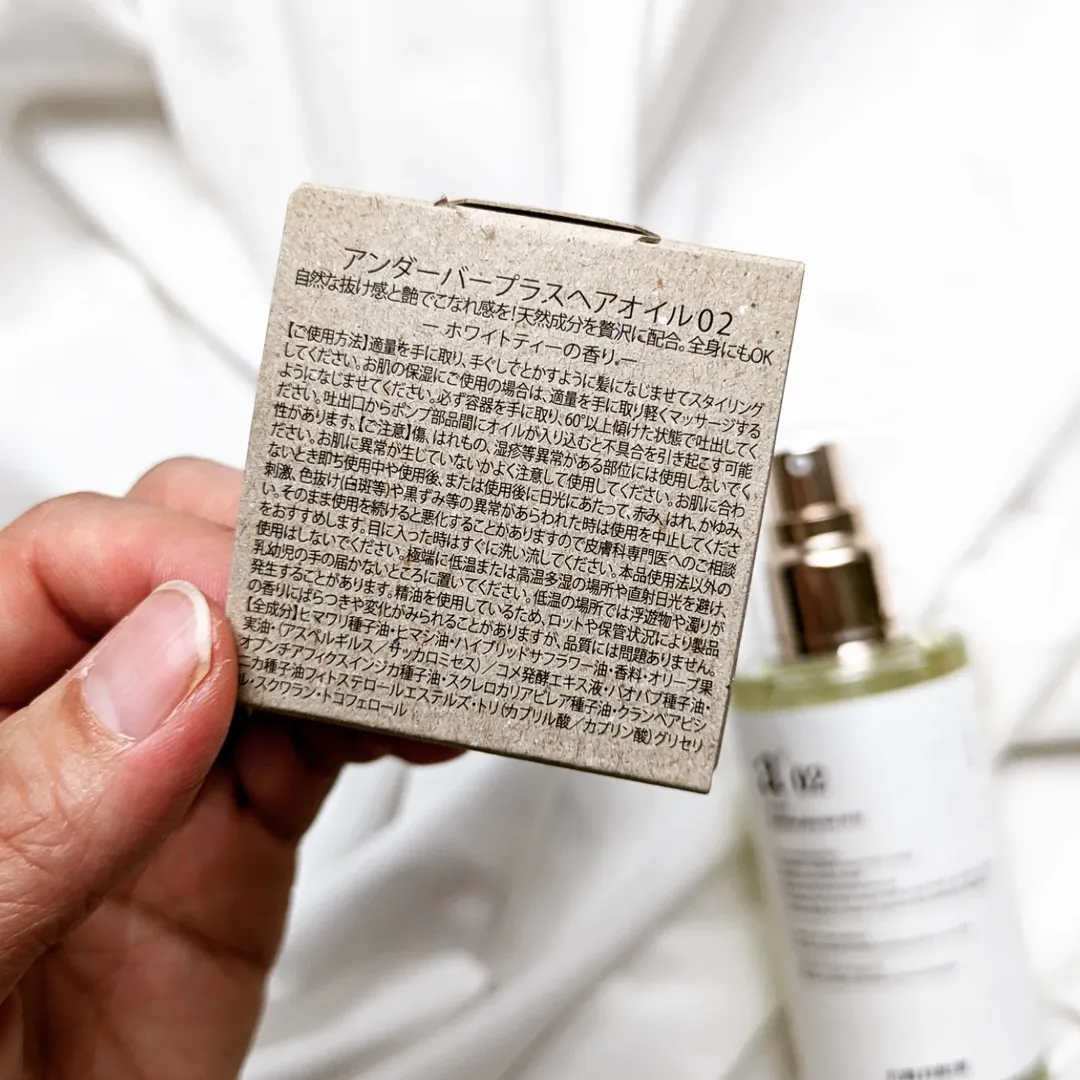 アンダーバープラスヘアオイル02
自然な抜け感と艶でこなれ感を!天然成分を贅沢に配合。全身にもOK
ー ホワイトティーの香り ー
【ご使用方法】適量を手に取り、手ぐしでとかすように髪になじませてスタイリング
してください。お肌の保湿にご使用の場合は、適量を手に取り軽くマッサージする
ようになじませてください。必ず容器を手に取り、60°以上傾けた状態で吐出してく
ださい。吐出口からポンプ部品間にオイルが入り込むと不具合を引き起こす可能
性があります。【ご注意】傷、はれもの、湿疹等異常がある部位には使用しないでく
ださい。お肌に異常が生じていないかよく注意して使用してください。お肌に合わ
ないとき即ち使用中や使用後、または使用後に日光にあたって、赤み、はれ、かゆみ、
刺激、色抜け(白斑等)や黒ずみ等の異常があらわれた時は使用を中止してくださ
い。そのまま使用を続けると悪化することがありますので皮膚科専門医へのご相談
をおすすめします。目に入った時はすぐに洗い流してください。本品使用法以外の
使用はしないでください。極端に低温または高温多湿の場所や直射日光を避け、
乳幼児の手の届かないところに置いてください。低温の場所では浮遊物や濁りが
発生することがあります。精油を使用しているため、ロットや保管状況により製品
の香りにばらつきや変化がみられることがありますが、品質には問題ありません。
【全成分】ヒマワリ種子油・ヒマシ油・ハイブリッドサフラワー油・香料・オリーブ果
実油・(アスペルギルス/サッカロミセス)/コメ発酵エキス液・バオバブ種子油・
オプンチアフィクスインジカ種子油・スクレロカリアビレア種子油・クランベアビシ
ニカ種子油フィトステロールエステルズ・トリ(カプリル酸/カプリン酸)グリセリ
ル・スクワラン・トコフェロール
02